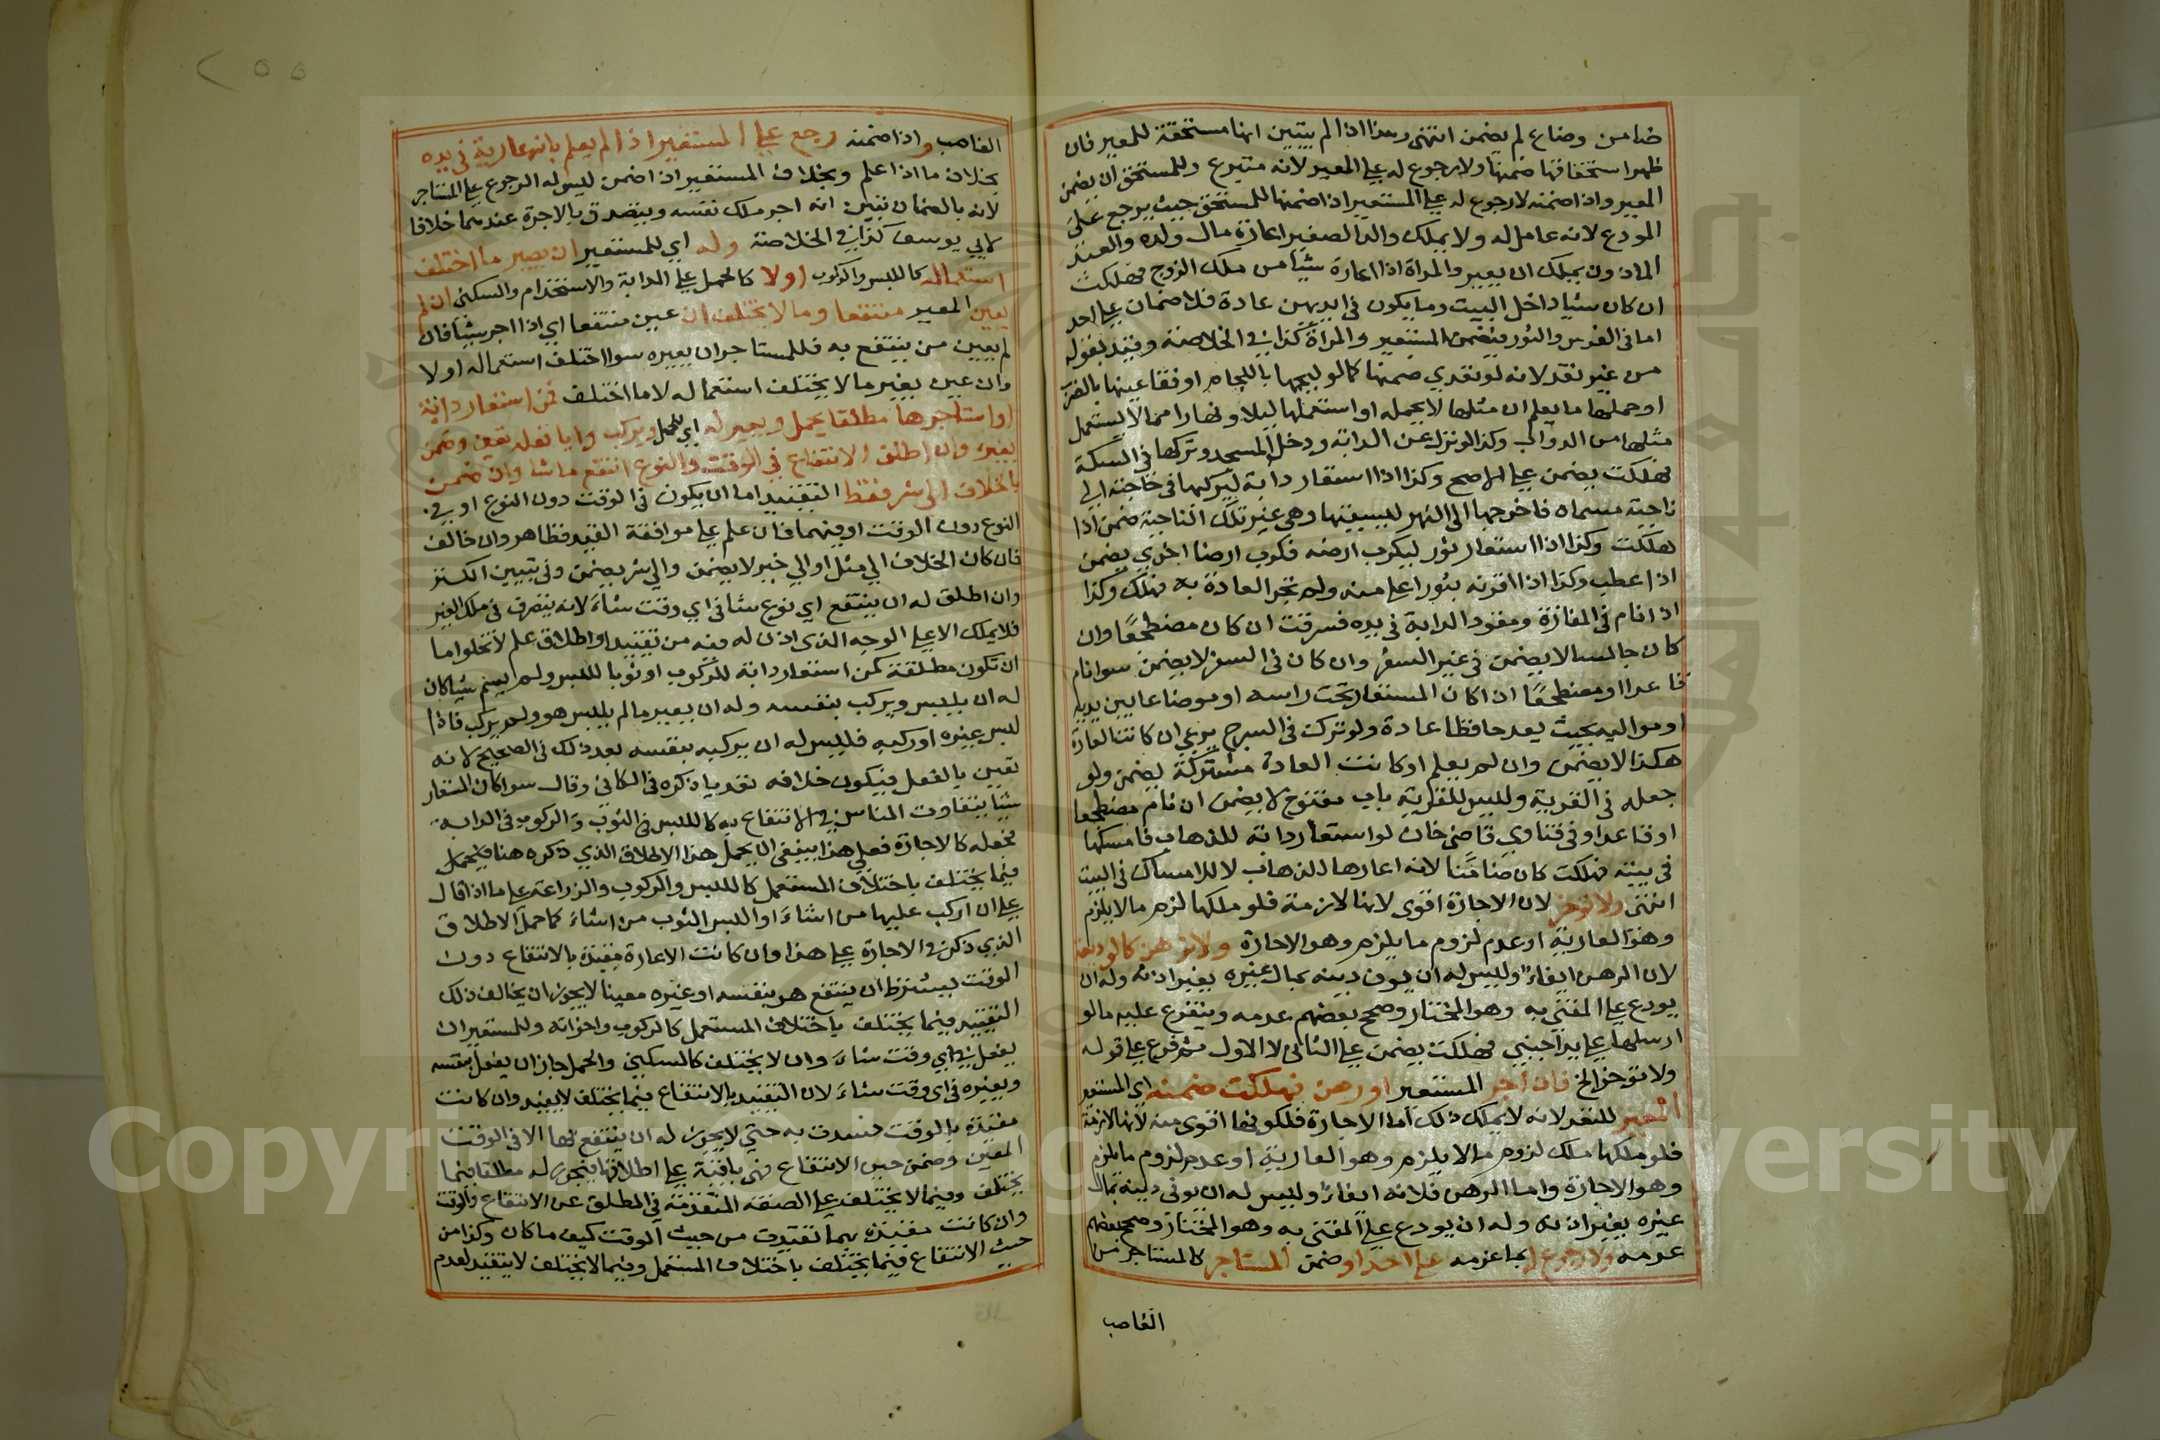 ضامن وضاع لم يضمن انتهى وهذا اذا لم يتبين انها مستحقة للمعير فان
ظهر استحقاقها ضمنها ولا رجوع له على المعير لانه متبرع وللمستحق ان يضمن
المعير واذا ضمنه لا رجوع له على المستعير اذا ضمنها للمستحق حيث يرجع على
المودع لانه عامل له ولا يملك والد الصغير اعارة مال ولده والعبد
الماذون يملك ان يعير والمراة اذا اعارة شيا من ملك الزوج فهلكت
ان كان شيا داخل البيت وما يكون في ايديهن عادة فلا ضمان على احد
اما في الفرس والثور فيضمن المستعير والمراة كذا في الخلاصة وقيد بقوله
من غير تعد لانه لو تعدي ضمنها كما لو لبجمها باللجام او فقا عينها بالضرب
او حملها ما يعلم ان مثلها لا يحمله او استعملها ليلا ونهارا مما لا يستعمل
مثلها من الدواب وكذا لو نزل عن الدابة ودخل المسجد وتركها في السكة
فهلكت يضمن على الاصح وكذا اذا استعار دابة ليركبها في حاجته الى
ناحية مسماه فاخرجها الى النهر ليسقيها وهي غير تلك الناحية ضمن اذا
هلكت وكذا اذا استعار ثور ليكرب ارضه فكرب ارضا اخرى يضمن
اذا عطب وكذا اذا قرنه بثور اعلا منه ولم تجر العادة به فهلك وكذا
اذا نام في المفازة ومقود الدابة في يده فسرقت ان كان مضطجعا وان
كان جالسا لا يضمن في غير السفر وان كان في السفر لا يضمن سوا نام
قاعدا او مضطجعا اذا كان المستعار تحت راسه او موضوعا بين يديه
او حواليه بحيث يعد حافظا عادة ولو تركت في السرح يرعى ان كانت العادة
هكذا لا يضمن وان لم يعلم او كانت العادة مشتركة يضمن ولو
جعله في القرية وليس للقرية باب مفتوح لا يضمن ان نام مضطجعا
او قاعدا وفي فتاوي قاضي خان لو استعار دابة للذهاب فامسكها
في بيته فهلكت كان ضامنا لانه اعارها للذهاب لا للامساك في البيت
انتهى ولا توجر لان الاجارة اقوى لانها لازمة فلو ملكها لزم ما لا يلزم
وهو العارية او عدم لزوم ما يلزم وهو الاجارة ولا ترهن كالوديعة
لان الرهن ايفاء وليس له ان يوف دينه بمال غيره بغير اذنه وله ان
يودع على المفتى به وهو المختار وصحح بعضهم عدمه ويتفرع عليه ما لو
ارسلها على يد اجنبي فهلكت يضمن على الثاني لا الاول ثم فرع على قوله
ولا توجر الخ فان اجر المستعير او رهن فهلكت ضمنه اي المستعير
المعير للتعد لانه لا يملك ذلك اما الاجارة فلكونها اقوى منه لانها لازمة
فلو ملكها ملك لزوم ما لا يلزم وهو العارية او عدم لزوم ما يلزم
وهو الاجارة واما الرهن فلانه ايفاء وليس له ان يوفي دينه بمال
غيره بغير اذنه وله ان يودع على المفتى به وهو المختار وصحح بعضهم
عدمه ولا رجوع له بما غرمه على احد او ضمن المستاجر كالمستاجر من
الغاصب
٢٥٥
الغاصب واذا ضمنه رجع على المستعير اذا لم يعلم بانه عارية في يده
بخلاف ما اذا علم وبخلاف المستعير اذا ضمن ليس له الرجوع على المستاجر
لانه بالضمان تبين انه اجر ملك نفسه ويتصدق بالاجرة عندهما خلافا
لابي يوسف كذا في الخلاصة وله اي للمستعير ان يعير ما اختلف
استعماله كاللبس والركوب اولا كالحمل على الدابة والاستخدام والسكنى ان لم
يعين المعير منتفعا وما لا يختلف ان عين منتفعا اي اذا اجر شيا فان
لم يعين من ينتفع به فللمستاجر ان يعيره سوا اختلف استعماله اولا
وان عين يعير ما لا يختلف استعماله لا ما اختلف فمن استعار دابة
او استاجرها مطلقا يحمل ويعير له اي للحمل ويركب وايا فعله تعين وضمن
بغيره وان اطلق الانتفاع في الوقت والنوع انتفع ما شا وان ضمن
بالخلاف الى شر فقط التقييد اما ان يكون في الوقت دون النوع او في
النوع دون الوقت او فيهما فان علم على موافقة القيد فظاهر وان خالف
فان كان الخلاف الى مثل او الي خير لا يضمن والى شر يضمن وفي تبيين الكنز
وان اطلق له ان ينتفع اي نوع شا في اي وقت شاء لانه يتصرف في ملك الغير
فلا يملك الا على الوجه الذي اذن له فيه من تقييد او اطلاق علم لا تخلوا اما
ان تكون مطلقة كمن استعار دابة للركوب او ثوبا للبس ولم يسم شيا كان
له ان يلبس ويركب بنفسه وله ان يعير ما لم يلبس هو ولم يركب فاذا
لبس غيره او ركبه فليس له ان يركبه بنفسه بعد ذلك في الصحيح لانه
تعين بالفعل فيكون خلافه تعديا ذكره في الكافي وقال سوا كان المستعار
شيا يتفاوت الناس في الانتفاع به كاللبس في الثوب والركوب في الدابة
فجعله كالاجارة فعلى هذا ينبغي ان يحمل هذا الاطلاق الذي ذكره هنا فيحمل
فيما يختلف باختلاف المستعمل كاللبس والركوب والزراعة على ما اذا قال
على ان اركب عليها من اشاء او البس الثوب من اشاء كما حمل الاطلاق
الذي ذكر في الاجارة على هذا وان كانت الاعارة مقيدة بالانتفاع دون
الوقت بيشترط ان ينتفع هو بنفسه او غيره معينا لا يجوز ان يخالف ذلك
التقييد فيما يختلف باختلاف المستعمل كالركوب واخواته وللمستعير ان
يفعل في اي وقت شاء وان لا يختلف كالسكنى والحمل جاز ان يفعل بنفسه
وبغيره في اي وقت شاء لان التقييد بالانتفاع فيما يختلف لا يفيد وان كانت
مقيدة بالوقت فتقيدت به حتى لا يجوز له ان ينتفع بها الا في الوقت
المعين وضمن حبس الانتفاع فهي باقية على اطلاقها فيجوز له مطلقا فيما
يختلف وفيما لا يختلف على الصفة المتقدمة في المطلق عن الانتفاع والوقت
وان كانت مقيدة بهما تقيدت من حيث الوقت كيف ما كان وكذا من
حيث الانتفاع فيما يختلف باختلاف المستعمل وفيما لا يختلف لا يتقيد لعدم
Copyright © King Saud University